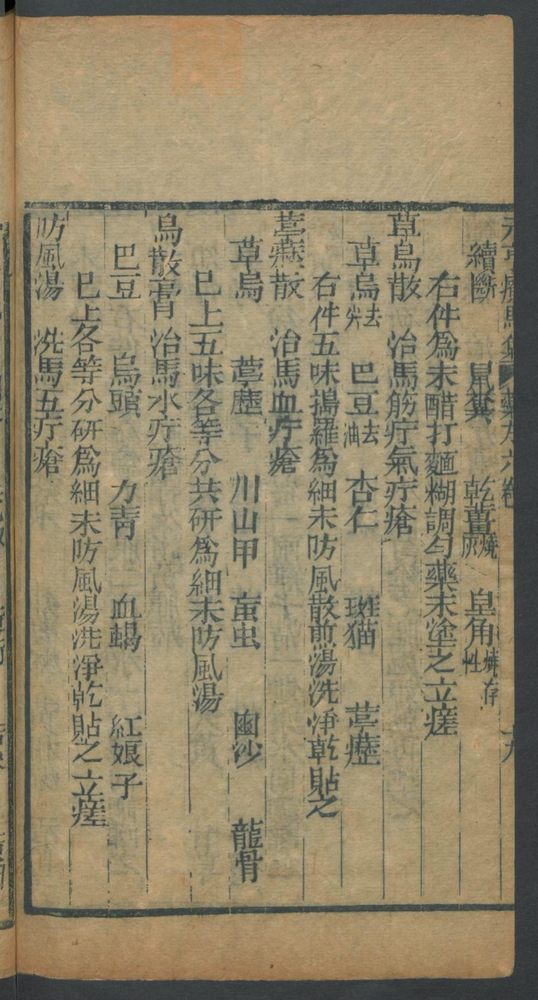 元亨療馬集 藥方六卷 十九
續斷 鼠糞 乾薑燒灰 皂角燒存性
右件為末醋打麵糊調勻藥末塗之立瘥
草烏散 治馬筋疔氣疔瘡
草烏去尖 巴豆去油 杏仁 斑猫 葶藶
右件五味搗羅為細末防風散煎湯洗淨乾貼之
葶藶散 治馬血疔瘡
草烏 葶藶 川山甲 䖟虫 硇沙 龍骨
巳上五味各等分共研為細末防風湯
烏散膏 治馬水疔瘡
巴豆 烏頭 力青 血蝎 紅娘子
巳上各等分研為細末防風湯洗淨乾貼之立瘥
防風湯 洗馬五疔瘡